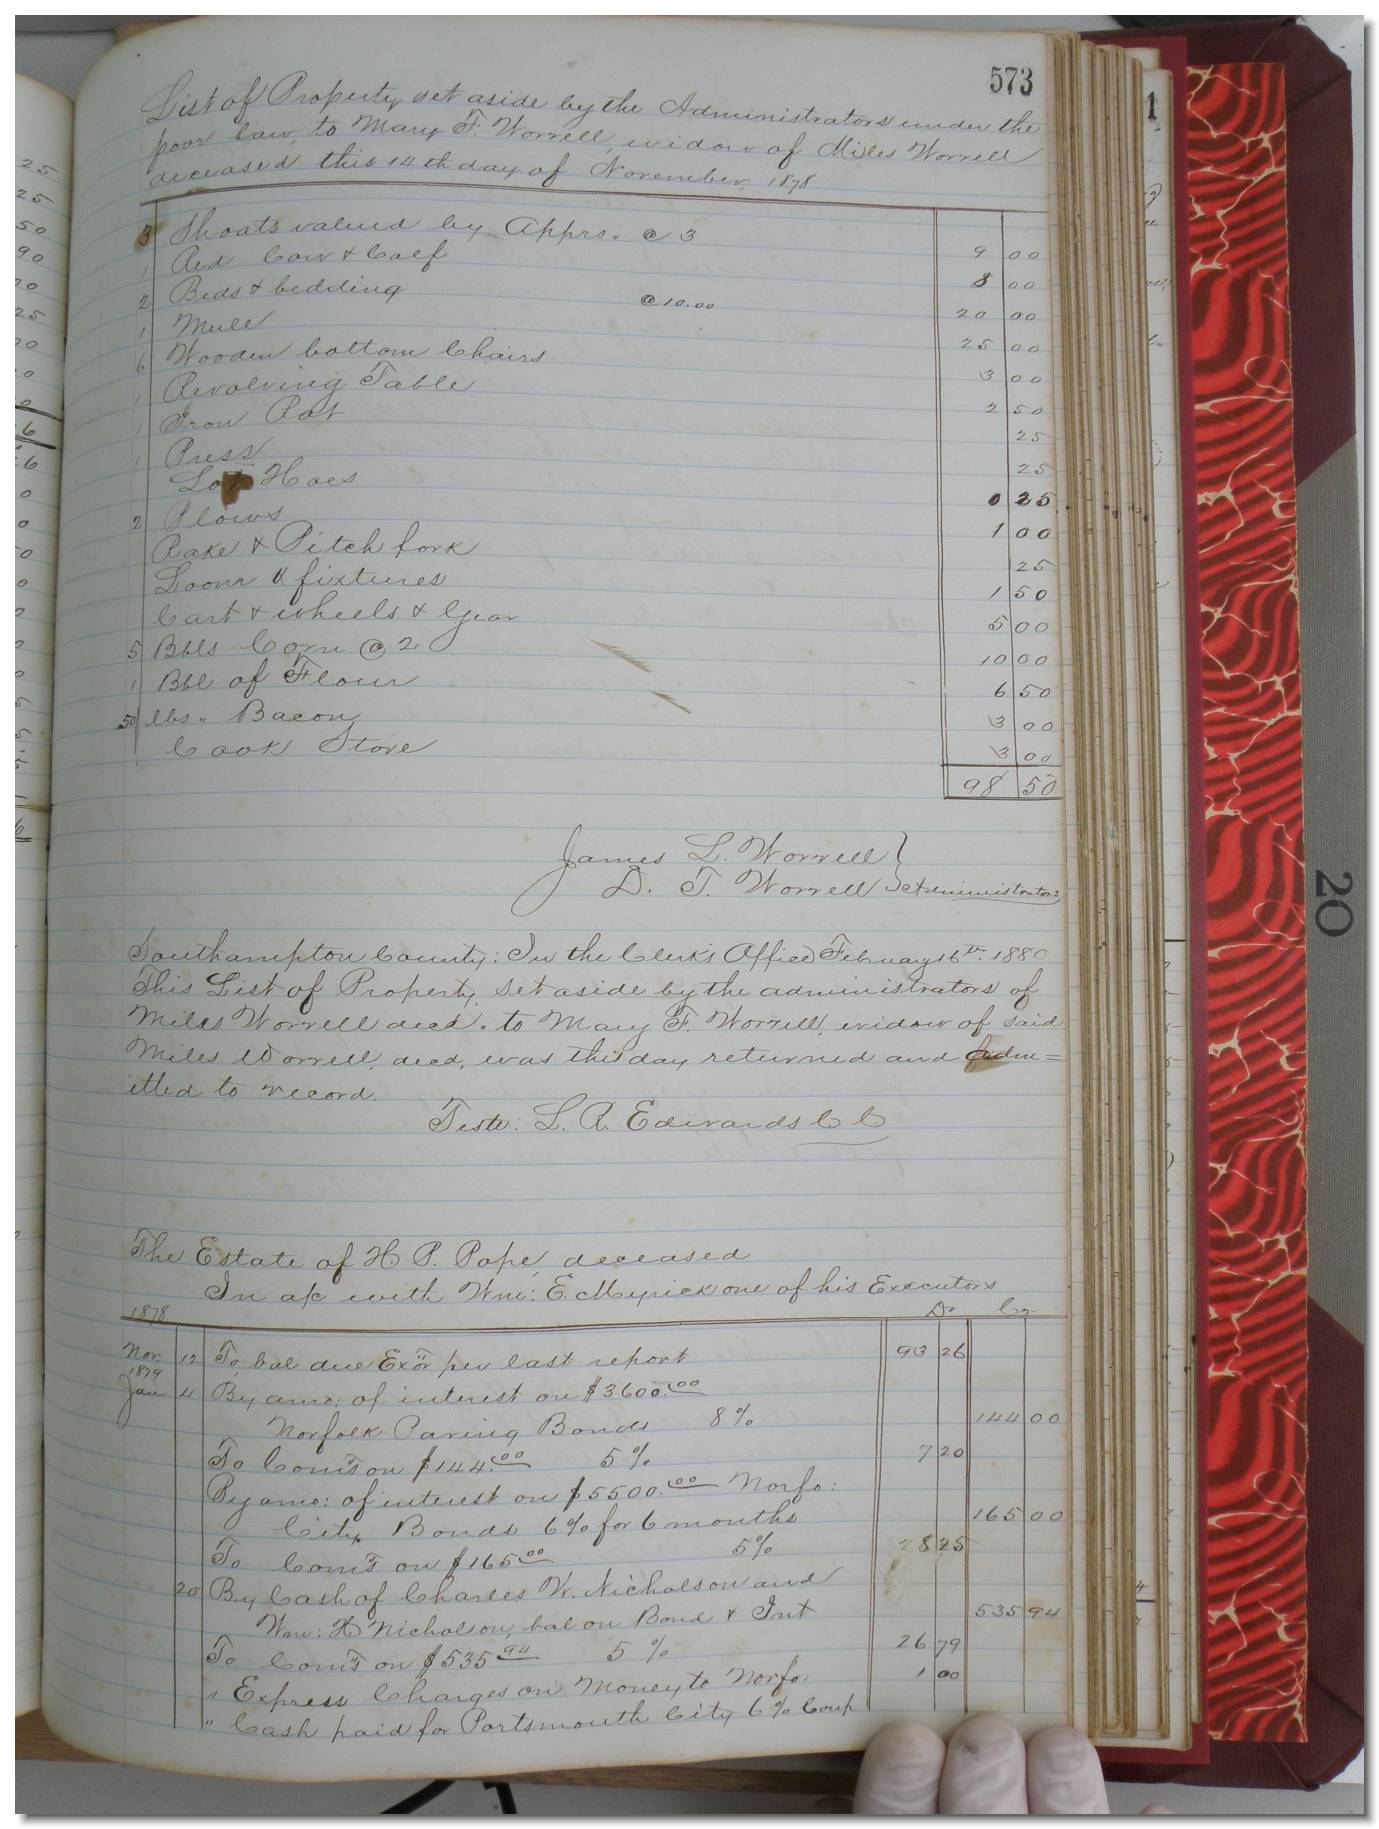 573
List of Property set aside by the Administrators under the
poor law, to Mary F. Worrell, widow of Miles Worrell
deceased this 14th day of November, 1878
3 Shoats valued by Apprs. @ 3 9 00
1 Red Cow & Calf 8 00
2 Beds & bedding @ 10.00 20 00
1 Mule 25 00
6 Wooden bottom Chairs 3 00
1 Revolving Table 2 50
1 Iron Pot 25
1 Press 25
Lot Hoes 0 25
2 Plows 1 00
Rake & Pitch fork 25
Loom & fixtures 1 50
Cart & wheels & Gear 5 00
5 Bbls Corn @ 2 10 00
1 Bbl of Flour 6 50
50 lbs " Bacon 3 00
Cook Stove 3 00
98 50
James L. Worrell }
D. T. Worrell } Administrators
Southampton County: In the Clerk's Office February 16th. 1880
This List of Property, set aside by the administrators of
Miles Worrell decd. to Mary F. Worrell, widow of said
Miles Worrell, decd, was this day returned and adm=
itted to record.
Teste: L. R. Edwards C C
The Estate of H P. Pope, deceased
In a/c with Wm: E. Myrick one of his Executors
1878 Dr Cr
Nov. 12 To bal due Exor per last report 93 26
1879
Jan 4 By amo: of interest on $3600.00
Norfolk Paving Bonds 8% 144 00
To Coms on $144.00 5% 7 20
By amo: of interest on $5500.00 Norfo:
City Bonds 6% for 6 months 165 00
To Coms on $165.00 5% 8 25
20 By Cash of Charles W. Nicholson and
Wm: H Nicholson, bal on Bond & Int 535 94
To Coms on $535 94 5 % 26 79
" Express Charges on Money to Norfo: 1 00
" Cash paid for Portsmouth City 6% Coup
20